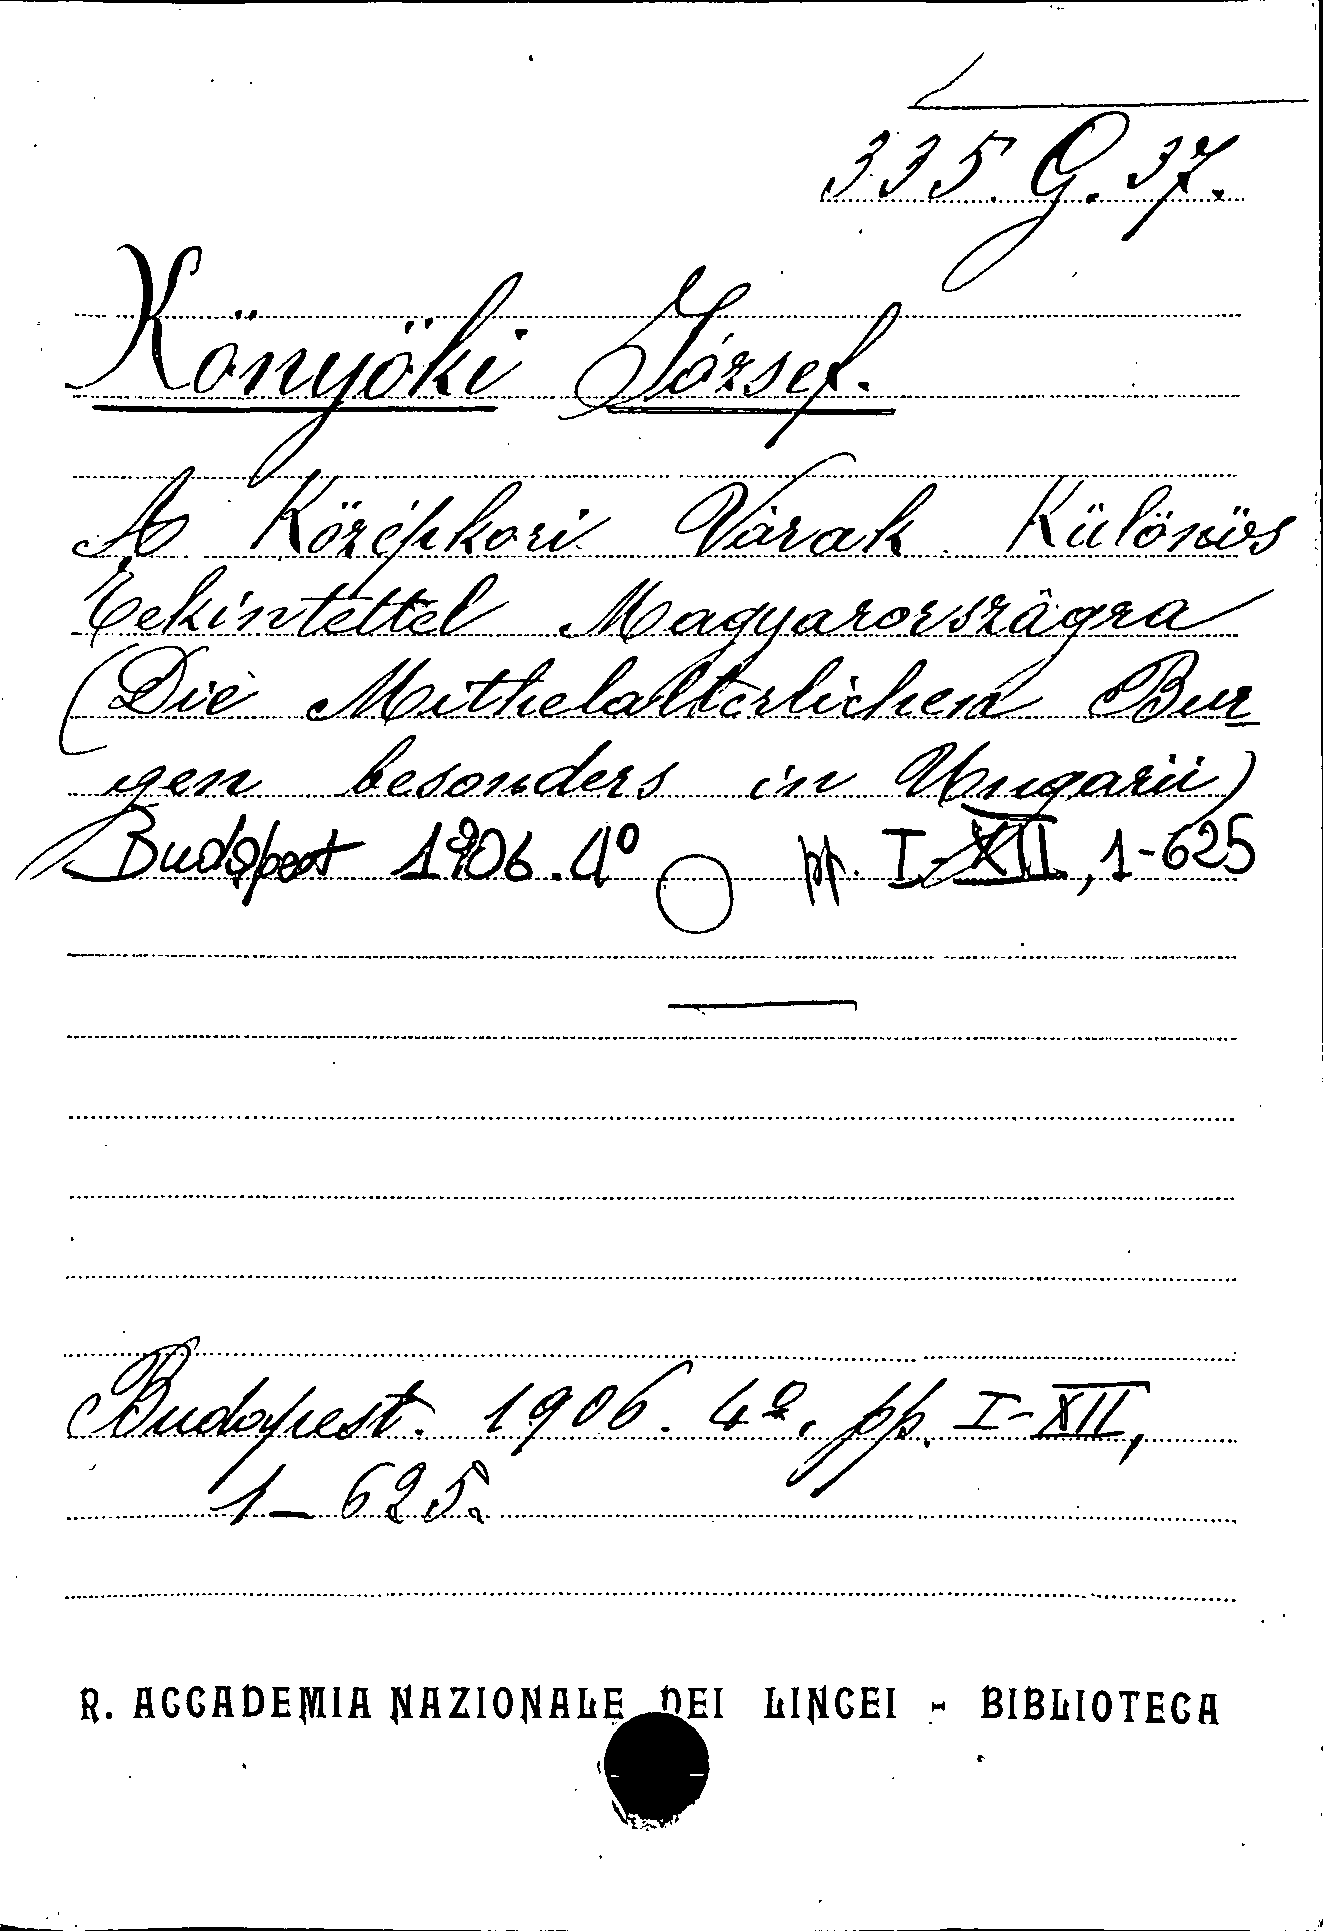 335. G. 37.
Könyöki József.
A Középkori Várak Különös
Tekintettel Magyarországra
(Die Mithelalterlichen Bur
gen besonders in Ungarii)
Budapest 1906. 4º pp. I-XII, 1-625
Budapest. 1906. 4º. pp. I-XII,
1-625.
R. ACCADEMIA NAZIONALE DEI LINCEI - BIBLIOTECA